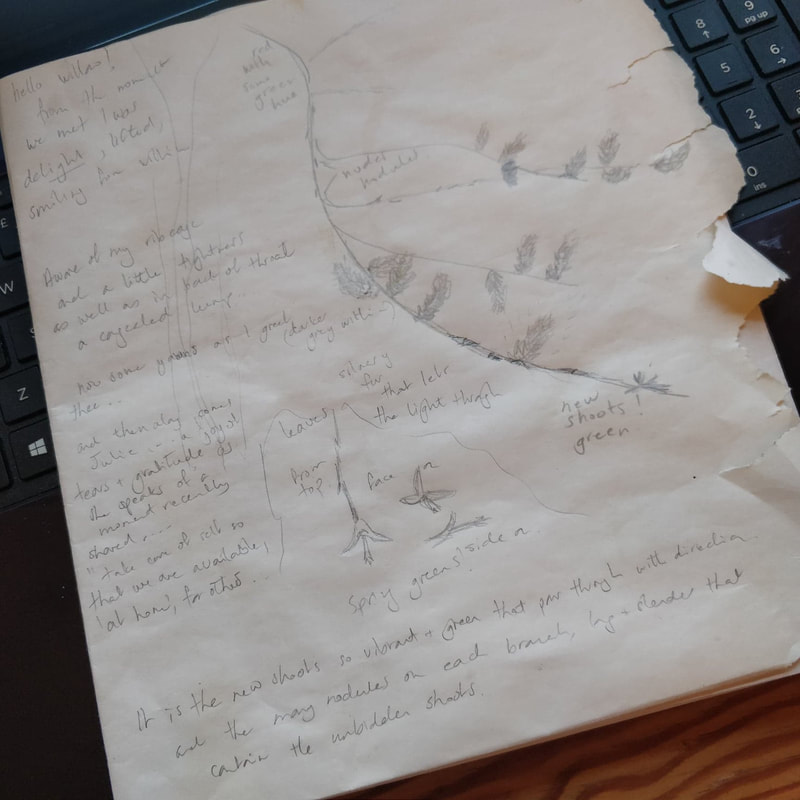 hello willow!
from the moment
we met I was
delight, lifted,
smiling from within
Aware of my ribcage
and a little tightness
as well as in back of throat
a congealed lump..
now some yawns as I greet
thee...
and then along comes
Julie ... a joy of
tears + gratitude as
she speaks of a
moment recently
shared ....
"take care of self so
that we are available,
'at home', for others...
red
with
some
green
hue
nodes
(darker
grey within)
silvery
fur
that lets
the light through
leaves
from
top
face on
side on
spring greens!
new
shoots!
green
It is the new shoots so vibrant + green that pour through with direction
and the many nodules on each branch, long + slender that
contain the unbidden shoots.